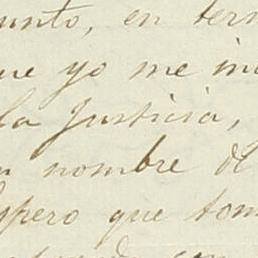 unto, en ter
ue yo me in
la Justicia,
n nombre de
spero que tom